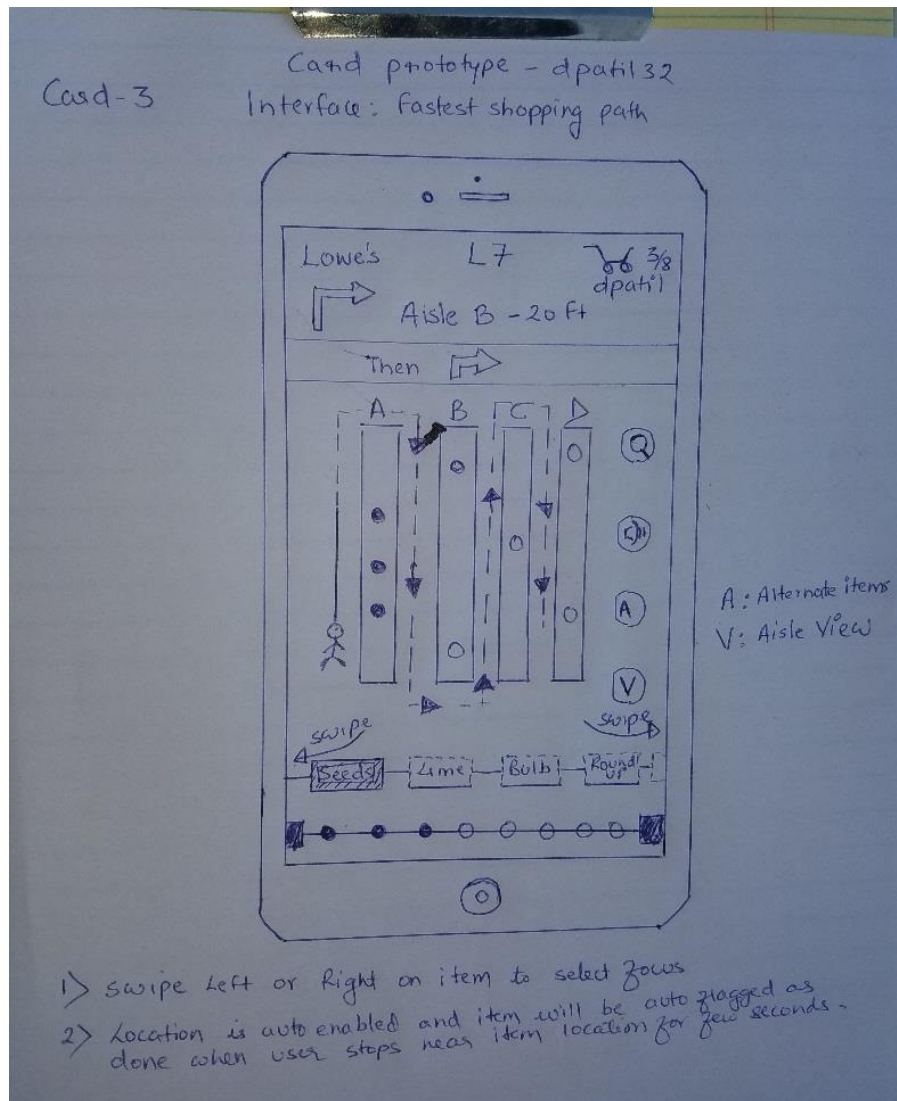 Card prototype - dpatil32
Card-3
Interface: Fastest shopping path
Lowe's L7 3/8
dpatil
Aisle B - 20 Ft
Then
A B C D
Q
A
V
A: Alternate items
V: Aisle View
swipe
swipe
Seeds Lime Bulb Round
UP
1) Swipe Left or Right on item to select focus
2) Location is auto enabled and item will be auto flagged as
done when user stops near item location for few seconds.